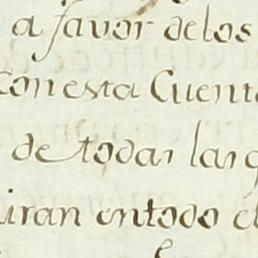 a favor delos
con esta Cuent
de todas las q
iran entodo el